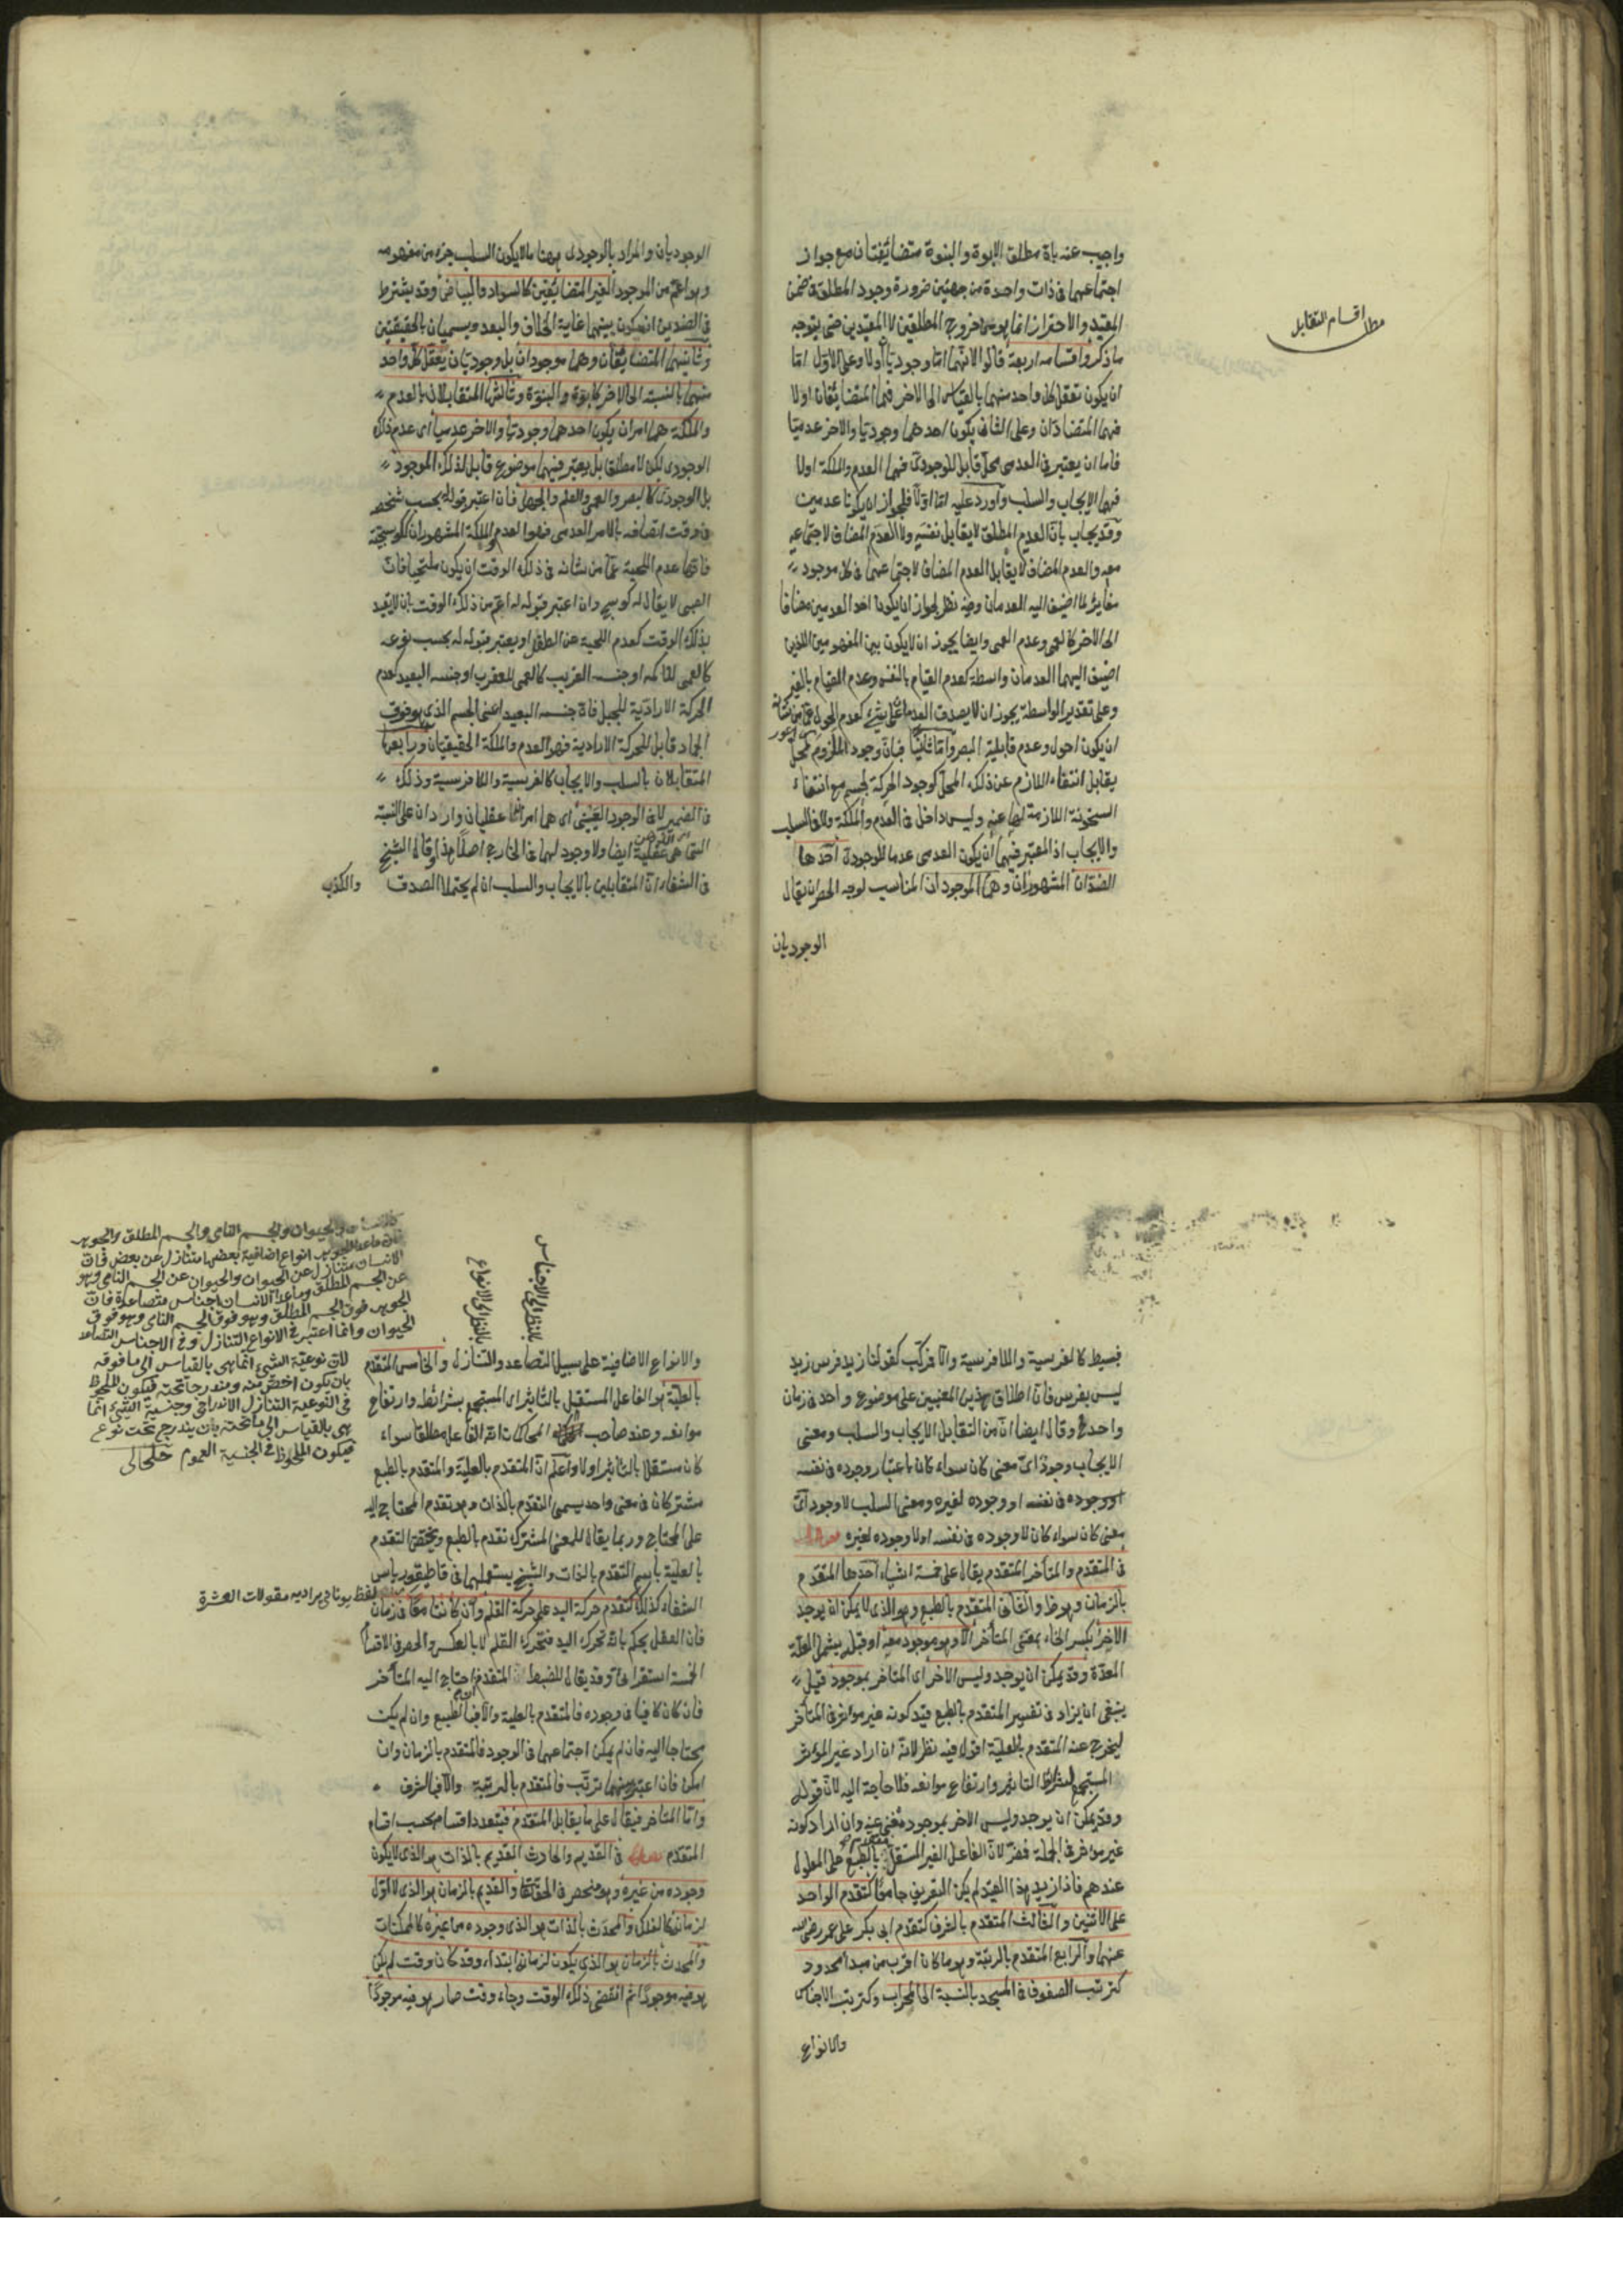 واجيب عنه بان مطلق الابوة والبنوة متضايفتان مع جواز
اجتماعهما فى ذات واحدة من جهتين ضرورة وجود المطلق فى ضمن
المقيد والاحتراز انما هو عن خروج المطلقين لا المقيدين حتى يتوجه
ما ذكر واقسامه اربعة قالوا لانهما اما وجوديان اولا وعلى الاول اما
ان يكون تعقل كل واحد منهما بالقياس الى الاخر فهما المتضايفان اولا
فهما المتضادان وعلى الثانى يكون احدهما وجوديا والاخر عدميا
فاما ان يعتبر فى العدمى محل قابل للوجودى فهما العدم والملكة اولا
فهما الايجاب والسلب واورد عليه اما اولا فلجواز ان يكونا عدميين
وقد يجاب بان العدم المطلق لا يقابل نفسه ولا العدم المضاف لاجتماعه
معه والعدم المضاف لا يقابل العدم المضاف لاجتماعهما فى كل موجود
مغاير لما اضيف اليه العدمان وفيه نظر لجواز ان يكون احد العدمين مضافا
الى الاخر كالعمى وعدم العمى وايضا يجوز ان لا يكون بين المفهومين اللذين
اضيف اليهما العدمان واسطة كعدم القيام بالنفس وعدم القيام بالغير
وعلى تقدير الواسطة يجوز ان لا يصدق العدمان على شئ كعدم الحول عما من شانه
ان يكون احول وعدم قابلية البصر واما ثانيا فبان وجود الملزوم لمحل
يقابل انتفاء اللازم عن ذلك المحل كوجود الحركة لجسم مع انتفاء
السخونة اللازمة لها عنه وليس داخل فى العدم والملكة ولا فى السلب
والايجاب اذ المعتبر فيهما ان يكون العدمى عدما للوجودى احدها
الضدان المشهوران وهما الموجودان المناسب لوجه الحصر ان يقال
الوجوديان
مطلب اقسام التقابل
الوجوديان والمراد بالوجودى ههنا ما لا يكون السلب جزء من مفهومه
وهو اعم من الموجود الغير المتضايفين كالسواد والبياض وقد يشترط
فى الضدين ان يكون بينهما غاية الخلاف والبعد ويسميان بالحقيقيين
وثانيهما المتضايفان وهما موجودان بل وجوديان يعقل كل واحد
منهما بالنسبة الى الاخر كابوة والبنوة وثالثها المتقابلان بالعدم
والملكة هما امران يكون احدهما وجوديا والاخر عدميا اى عدم ذلك
الوجودى لكن لا مطلقا بل يعتبر فيهما موضوع قابل لذلك الموجود
بل الوجودى كالبصر والعمى والعلم والجهل فان اعتبر قبوله بحسب شخصه
فى وقت اتصافه بالامر العدمى فهو العدم والملكة المشهوران كالكوسجية
فانها عدم اللحية عما من شانه فى ذلك الوقت ان يكون ملتحيا فان
الصبى لا يقال له كوسج وان اعتبر قبوله له اعم من ذلك الوقت بان لا يقيد
بذلك الوقت كعدم اللحية عن الطفل او يعتبر قبوله له بحسب نوعه
كالعمى للاكمه او جنسه القريب كالعمى للعقرب او جنسه البعيد كعدم
الحركة الارادية للجبل فان جنسه البعيد اعنى الجسم الذى هو فوق
الجماد قابل للحركة الارادية فهو العدم والملكة الحقيقيان ورابعها
المتقابلان بالسلب والايجاب كالفرسية واللافرسية وذلك
فى الضمير لا فى الوجود العينى اى هما امران عقليان واردان على النسبة
التى هى عقلية ايضا ولا وجود لهما فى الخارج اصلا هذا وقال الشيخ
فى الشفاء ان المتقابلين بالايجاب والسلب ان لم يحتملا الصدق
والكذب
فبسيط كالفرسية واللافرسية والا فمركب كقولنا زيد فرس زيد
ليس بفرس فان اطلاق هذين المعنيين على موضوع واحد فى زمان
واحد مح وقال ايضا ان من التقابل الايجاب والسلب ومعنى
الايجاب وجود اى معنى كان سواء كان باعتبار وجوده فى نفسه
او وجوده لغيره ومعنى السلب لا وجود اى
معنى كان سواء كان لا وجوده فى نفسه او لا وجوده لغيره
فى المتقدم والمتاخر المتقدم يقال على خمسة اشياء احدها المتقدم
بالزمان وهو ظ والثانى المتقدم بالطبع وهو الذى لا يمكن ان يوجد
الاخر بكسر الخاء بمعنى المتاخر الا وهو موجود معه او قبله يشمل العلة
المعدة وقد يمكن ان يوجد وليس الاخر اى المتاخر بموجود قيل
ينبغى ان يزاد فى تفسير المتقدم بالطبع قيد كونه غير موثر فى المتاخر
ليخرج عنه المتقدم بالعلية اقول فيه نظر لانه ان اراد غير المؤثر
المستجمع لشرائط التاثير وارتفاع موانعه فلا حاجة اليه لان قوله
وقد يمكن ان يوجد وليس الاخر بموجود مغن عنه وان اراد كونه
غير موثر فى الجملة فمضر لان الفاعل الغير المستقل بالطبع على المعلول
عندهم فاذا زيد هذا القيد لم يكن التعريف جامعا كتقدم الواحد
على الاثنين والثالث المتقدم بالشرف كتقدم ابى بكر على عمر رضى الله
عنهما والرابع المتقدم بالرتبة وهو ما كان اقرب من مبدا محدود
كترتب الصفوف فى المسجد بالنسبة الى المحراب وكترتب الاجناس
والانواع
والحيوان والجسم النامى والجسم المطلق والجوهر
انواع اضافية بعضها متنازل عن بعض فان
الانسان متنازل عن الحيوان والحيوان عن الجسم النامى وهو
عن الجسم المطلق وما عدا الانسان اجناس متصاعدة فان
الجوهر فوق الجسم المطلق وهو فوق الجسم النامى وهو فوق
الحيوان وانما اعتبر فى الانواع التنازل وفى الاجناس التصاعد
لان نوعية الشئ انما هى بالقياس الى ما فوقه
بان يكون اخص منه ومندرجا تحته فيكون الملحوظ
فى النوعية التنازل الاندراجى وجنسية الشئ انما
هى بالقياس الى ما تحته بان يندرج تحته نوع
فيكون الملحوظ فى الجنسية العموم خلخالى
بالنظر الى الانواع
بالنظر الى الاجناس
والانواع الاضافية على سبيل التصاعد والتنازل والخامس المتقدم
بالعلية هو الفاعل المستقل بالتاثير اى المستجمع بشرائط وارتفاع
موانعه وعند صاحب المحاكمات انه الفاعل مطلقا سواء
كان مستقلا بالتاثير اولا واعلم ان المتقدم بالعلية والمتقدم بالطبع
مشتركان فى معنى واحد يسمى التقدم بالذات وهو تقدم المحتاج اليه
على المحتاج وربما يقال للمعنى المشترك تقدم بالطبع ويختص التقدم
بالعلية باسم التقدم بالذات والشيخ يستعملهما فى قاطيغورياس
الشفاء كذلك كتقدم حركة اليد على حركة القلم وان كانتا معا فى زمان
فان العقل يحكم بانه تحرك اليد فتحرك القلم لا بالعكس والحصر فى الاقسام
الخمسة استقرائى وقد يقال للضبط المتقدم ان احتاج اليه المتاخر
فان كان كافيا فى وجوده فالمتقدم بالعلية والا فبالطبع وان لم يكن
محتاجا اليه فان لم يمكن اجتماعهما فى الوجود فالمتقدم بالزمان وان
امكن فان اعتبر بينهما ترتب فالمتقدم بالرتبة والا فبالشرف
واما المتاخر فيقال على ما يقابل المتقدم فيتعدد اقسامه بحسب اقسام
المتقدم فصل فى القديم والحادث القديم بالذات هو الذى لا يكون
وجوده من غيره وهو منحصر فى الحق تعالى والقديم بالزمان هو الذى لا اول
لزمانه كالفلك والمحدث بالذات هو الذى وجوده من غيره كالممكنات
والمحدث بالزمان هو الذى يكون لزمانه ابتداء وقد كان وقت لم يكن
هو فيه موجودا ثم انقضى ذلك الوقت وجاء وقت صار هو فيه موجودا
لفظ يونانى يراد به مقولات العشرة